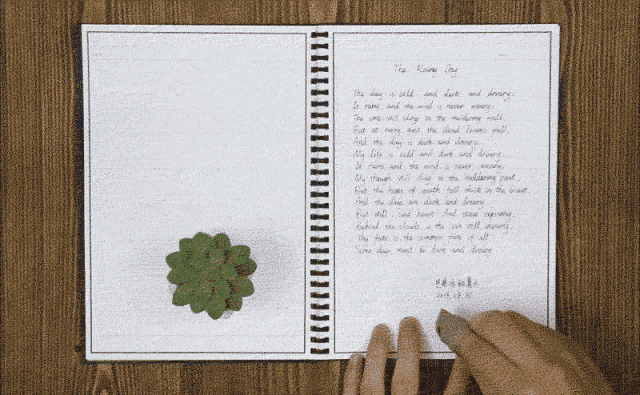 The Rainy Day
The day is cold and dark and dreary.
It rains, and the wind is never weary.
The vine still clings to the moldering wall.
But at every gust the dead leaves fall.
And the day is dark and dreary.
My life is cold and dark and dreary.
It rains and the wind is never weary.
My though still cling to the moldering past.
But the hopes of youth fall thick in the blast.
And the days are dark and dreary.
Be still, sad heart. And cease repining.
Behind the clouds is the sun still shining.
Thy fate is the common fate of all
Some days must be dark and dreary